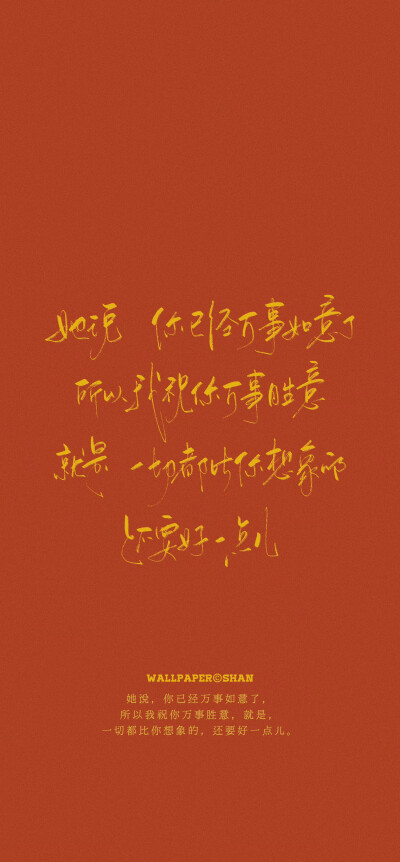 她说 你已经万事如意了
所以我祝你万事胜意
就是 一切都比你想象的
还要好一点儿
WALLPAPER©SHAN
她说，你已经万事如意了，
所以我祝你万事胜意，就是，
一切都比你想象的，还要好一点儿。